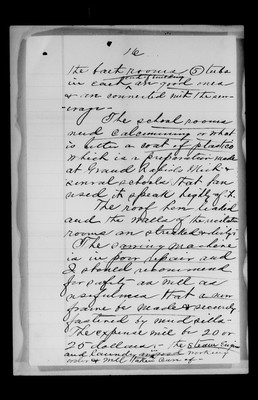 16
the bath rooms (5) tubs
in each an good ones
& are connected with the sew-
erage -
The school rooms
need calcomining or what
is better a coat of plastico
which is a preparation made
at Grand Rapids Mich &
several schools that have
used it speak highly of it.
The roof here is old
and the walls of the
rooms are streaked & dirty.
The sawing machine
is in poor repair and
I should recommend
for safety as well as
usefulness that a new
frame be made & securely
fastened by mud sills.
The expense will be 20 or
25 dollars. - The steam engine
and laundry working
order & well taken care of -